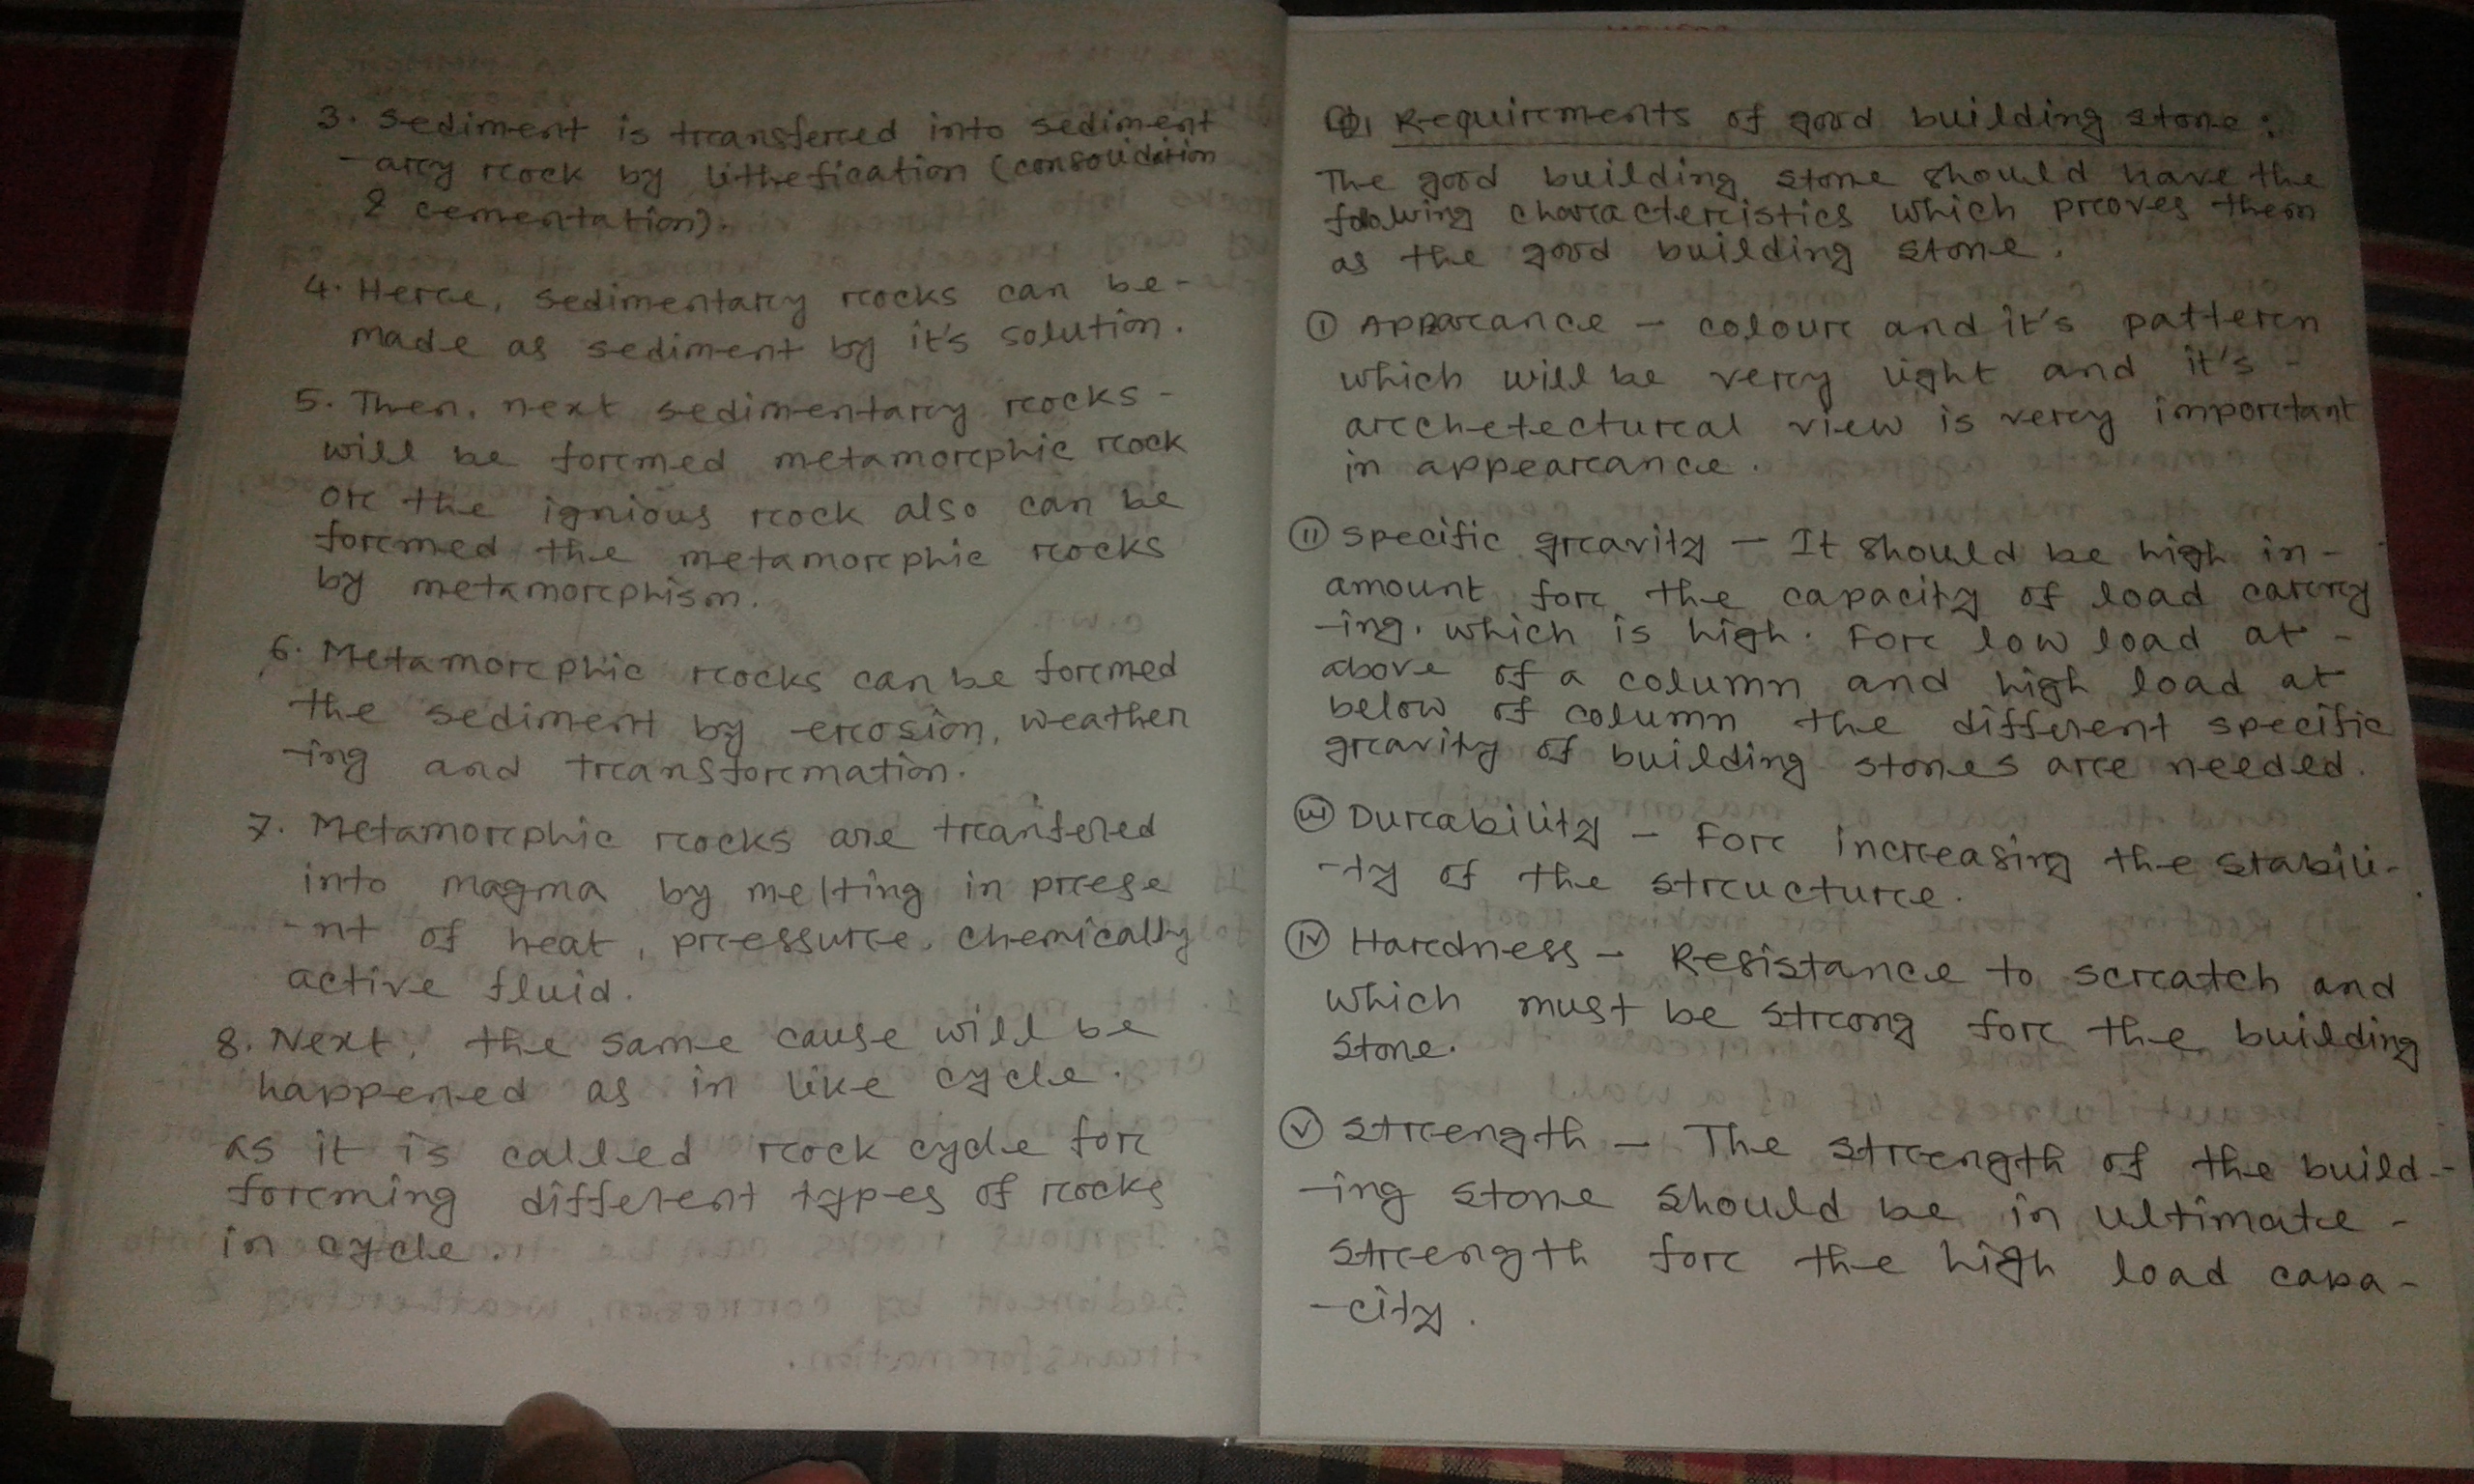 3. Sediment is transferred into sediment
-ary rock by lithefication (consolidation
& cementation).
4. Herae, sedimentary rocks can be-
made as sediment by it's solution.
5. Then, next sedimentary rocks -
will be formed metamorphic rock
or the ignious rock also can be
formed the metamorphic rocks
by metamorphism.
6. Metamorphic rocks can be formed
the sediment by erosion, weather
-ing and transformation.
7. Metamorphic rocks are tranfered
into magma by melting in prese
-nt of heat, pressure, chemically
active fluid.
8. Next, the same cause will be
happened as in like cycle.
as it is called rock cycle for
forming different types of rocks
in cycle.
Requirements of good building stone:
The good building stone should have the
following characteristics which proves them
as the good building stone.
(i) Appearance - colour and it's pattern
which will be very light and it's -
archetectural view is very important
in appearance.
(ii) specific gravity - It should be high in -
amount for the capacity of load carry
-ing. which is high. For low load at -
above of a column and high load at
below of column the different specific
gravity of building stones are needed.
(iii) Durability - For increasing the stabili-
-ty of the structure.
(iv) Hardness - Resistance to scratch and
which must be strong for the building
stone.
(v) strength - The strength of the build-
-ing stone should be in ultimate -
strength for the high load capa-
-city.